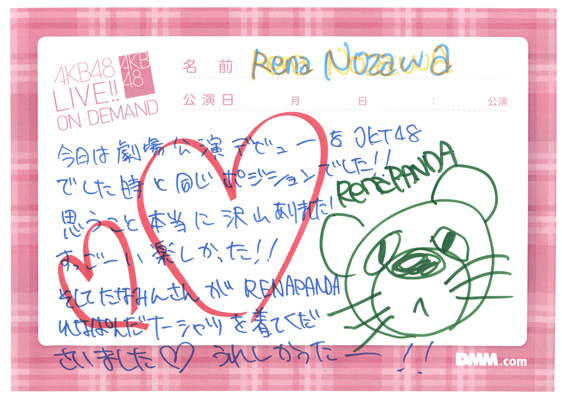 AKB48
LIVE!!
ON DEMAND
AKB
48
名前 Rena Nozawa
公演日 月 日 : 公演
今日は劇場公演デビューをJKT48
でした時と同じポジションでした!!
思うこと本当に沢山ありました!
すっごーい楽しかった!!
そしてたなみんさんがRENAPANDA
れなぱんだTーシャツを着てくだ
さいました♡うれしかったー!!
RENAPANDA
DMM.com